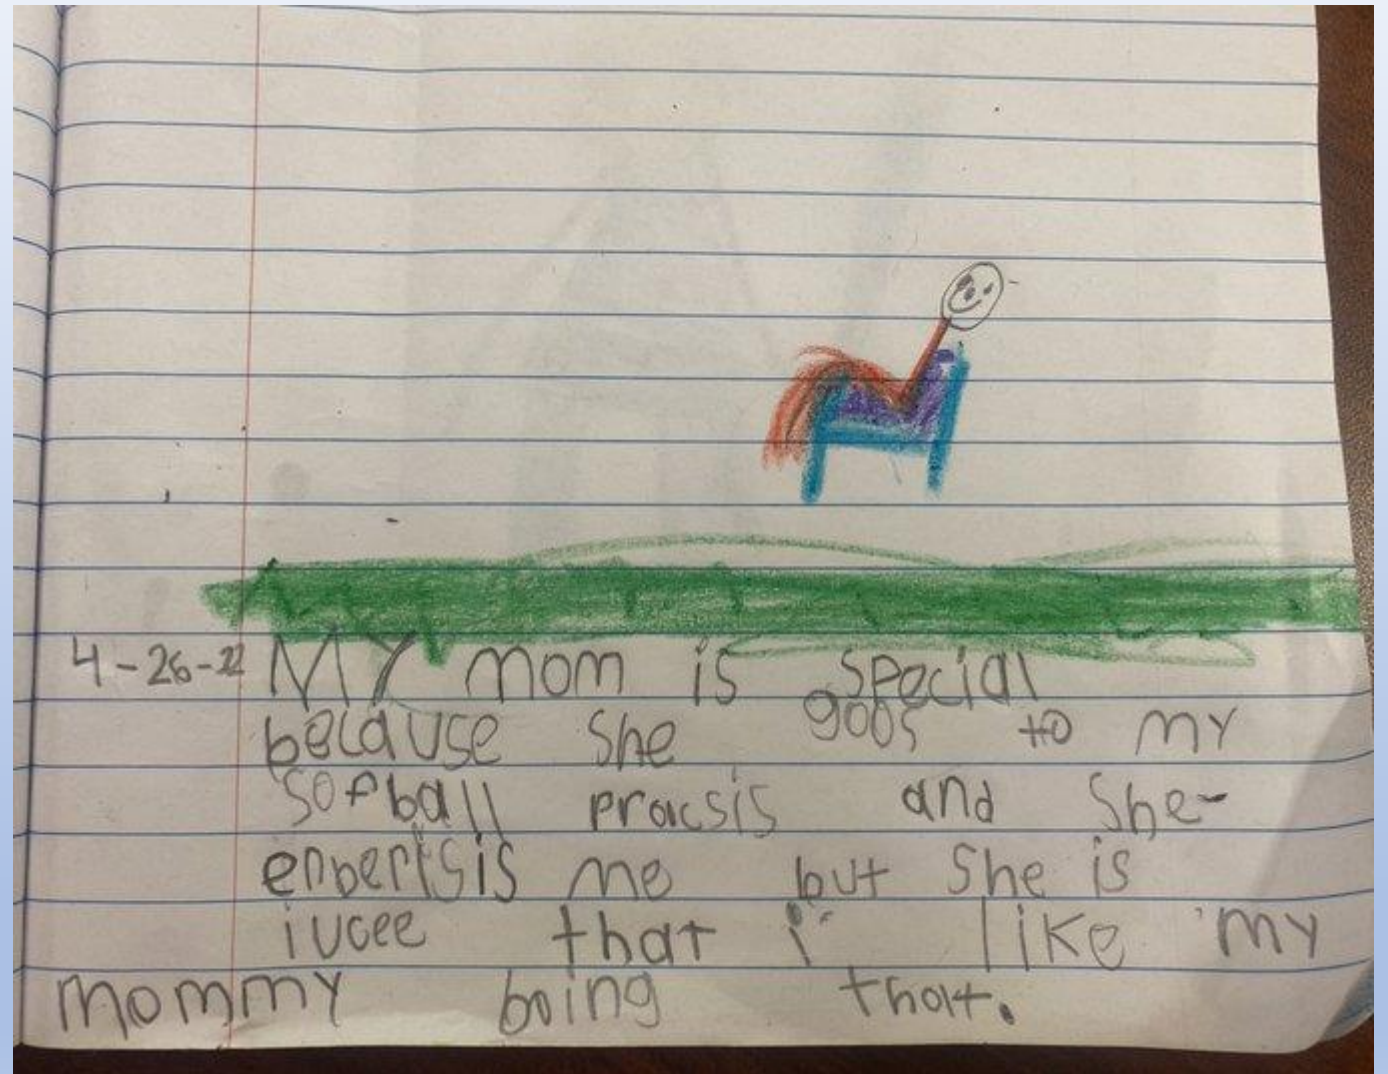 4-26-22 My mom is special
because she goos to my
sofball pracsis and she
enberisis me but she is
iucee that i like my
mommy boing that.